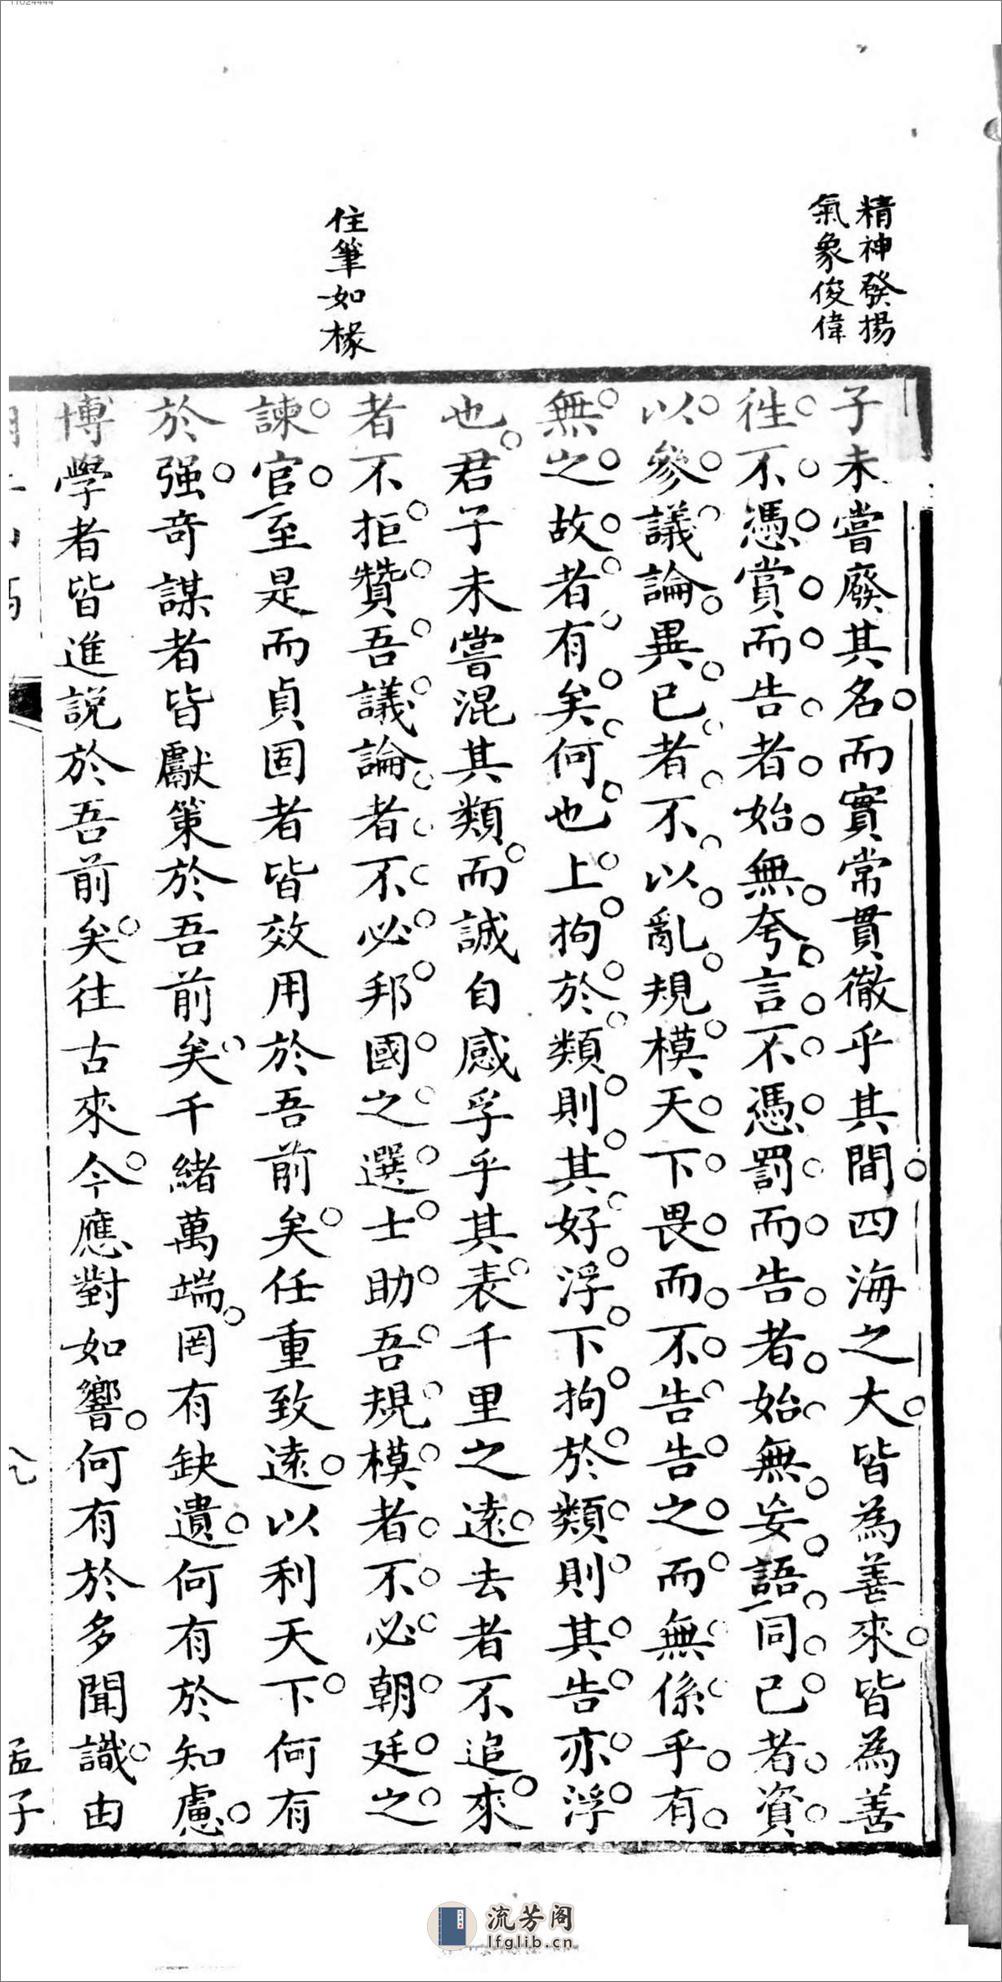 精神發揚
氣象俊偉
住筆如椽
子未嘗廢其名而實常貫徹乎其間四海之大皆為善來皆為善
徃不憑賞而告者始無夸言不憑罰而告者始無妄語同已者資
以參議論異已者不以亂規模天下畏而不告告之而無係乎有
無之故者有矣何也上拘於類則其好浮下拘於類則其告亦浮
也君子未嘗混其類而誠自感孚乎其表千里之遠去者不追來
者不拒贊吾議論者不必邦國之選士助吾規模者不必朝廷之
諫官至是而貞固者皆效用於吾前矣任重致遠以利天下何有
於强奇謀者皆獻策於吾前矣千緒萬端罔有缺遺何有於知慮
博學者皆進說於吾前矣往古來今應對如響何有於多聞識由
九
孟子
流芳阁
lfglib.cn
11024444